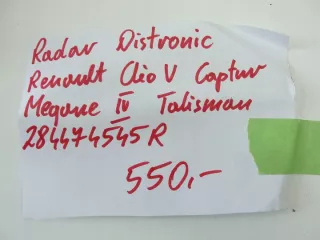 Radar Distronic
Renault Clio V Captur
Megane IV Talisman
284474545R
550,-